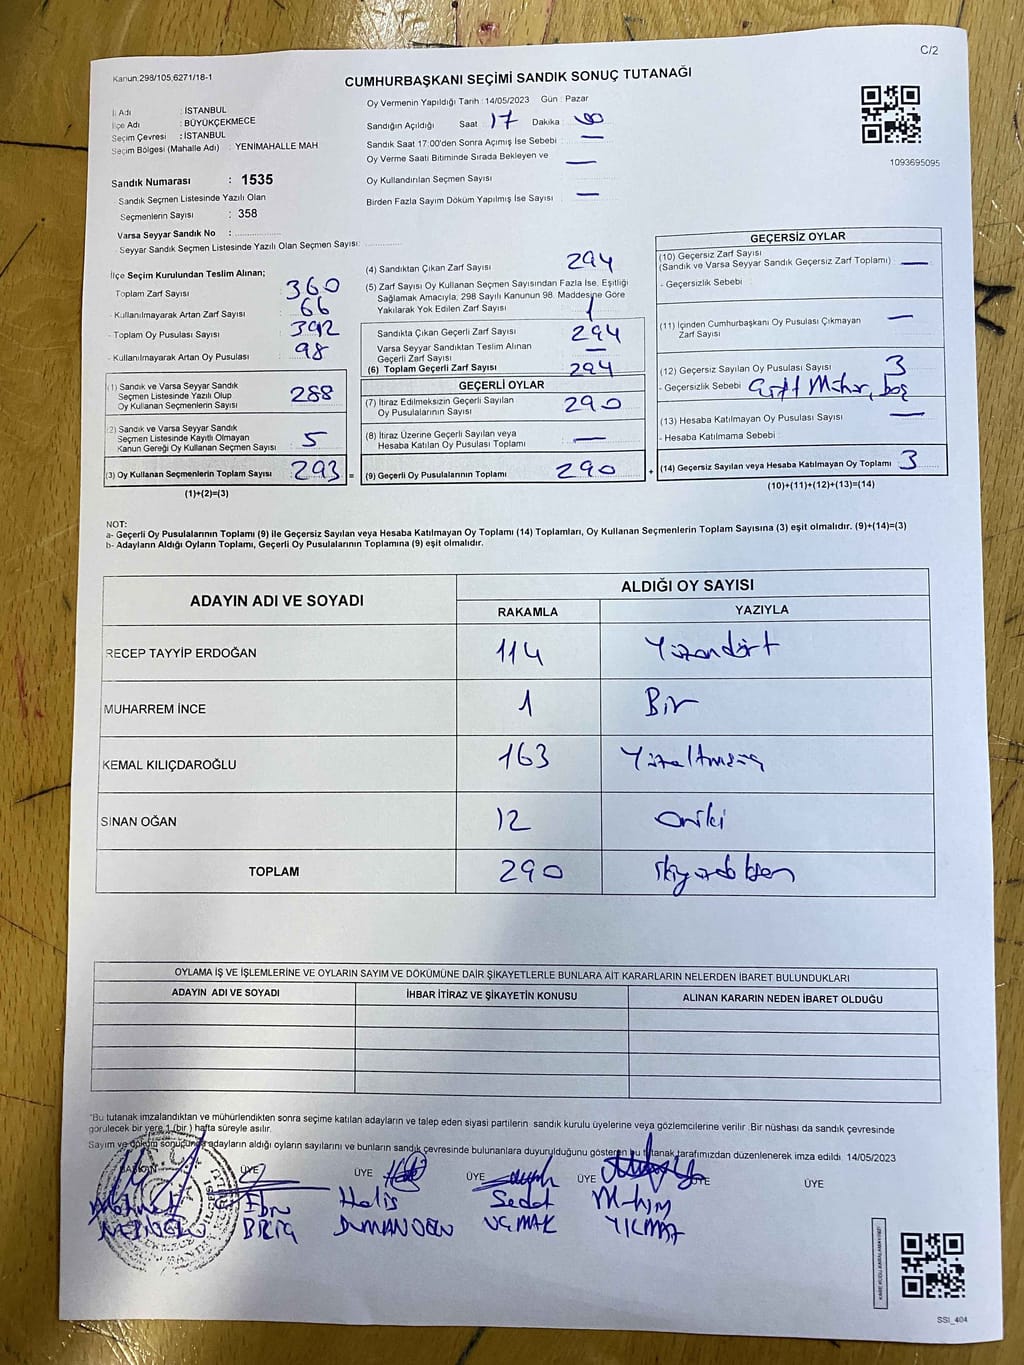 C/2
Kanun:298/105,6271/18-1
CUMHURBAŞKANI SEÇİMİ SANDIK SONUÇ TUTANAĞI
İl Adı : İSTANBUL
İlçe Adı : BÜYÜKÇEKMECE
Seçim Çevresi : İSTANBUL
Seçim Bölgesi (Mahalle Adı) : YENİMAHALLE MAH
Sandık Numarası : 1535
Sandık Seçmen Listesinde Yazılı Olan
Seçmenlerin Sayısı : 358
Varsa Seyyar Sandık No :
- Seyyar Sandık Seçmen Listesinde Yazılı Olan Seçmen Sayısı:
Oy Vermenin Yapıldığı Tarih : 14/05/2023 Gün : Pazar
Sandığın Açıldığı Saat : 17 Dakika : 00
Sandık Saat 17:00'den Sonra Açımış İse Sebebi : —
Oy Verme Saati Bitiminde Sırada Bekleyen ve —
Oy Kullandırılan Seçmen Sayısı
Birden Fazla Sayım Döküm Yapılmış İse Sayısı : —
1093695095
İlçe Seçim Kurulundan Teslim Alınan;
Toplam Zarf Sayısı : 360
- Kullanılmayarak Artan Zarf Sayısı : 66
- Toplam Oy Pusulası Sayısı : 392
- Kullanılmayarak Artan Oy Pusulası : 98
(1) Sandık ve Varsa Seyyar Sandık
Seçmen Listesinde Yazılı Olup
Oy Kullanan Seçmenlerin Sayısı : 288
(2) Sandık ve Varsa Seyyar Sandık
Seçmen Listesinde Kayıtlı Olmayan
Kanun Gereği Oy Kullanan Seçmen Sayısı : 5
(3) Oy Kullanan Seçmenlerin Toplam Sayısı : 293 =
(1)+(2)=(3)
(4) Sandıktan Çıkan Zarf Sayısı : 294
(5) Zarf Sayısı Oy Kullanan Seçmen Sayısından Fazla İse, Eşitliği
Sağlamak Amacıyla; 298 Sayılı Kanunun 98. Maddesine Göre
Yakılarak Yok Edilen Zarf Sayısı : 1
Sandıkta Çıkan Geçerli Zarf Sayısı : 294
Varsa Seyyar Sandıktan Teslim Alınan —
Geçerli Zarf Sayısı
(6) Toplam Geçerli Zarf Sayısı : 294
GEÇERLİ OYLAR
(7) İtiraz Edilmeksizin Geçerli Sayılan
Oy Pusulalarının Sayısı : 290
(8) İtiraz Üzerine Geçerli Sayılan veya
Hesaba Katılan Oy Pusulası Toplamı : —
(9) Geçerli Oy Pusulalarının Toplamı : 290 +
GEÇERSİZ OYLAR
(10) Geçersiz Zarf Sayısı
(Sandık ve Varsa Seyyar Sandık Geçersiz Zarf Toplamı) : —
- Geçersizlik Sebebi :
(11) İçinden Cumhurbaşkanı Oy Pusulası Çıkmayan —
Zarf Sayısı
(12) Geçersiz Sayılan Oy Pusulası Sayısı : 3
- Geçersizlik Sebebi : Çift Mühür, boş
(13) Hesaba Katılmayan Oy Pusulası Sayısı : —
- Hesaba Katılmama Sebebi :
(14) Geçersiz Sayılan veya Hesaba Katılmayan Oy Toplamı : 3
(10)+(11)+(12)+(13)=(14)
NOT:
a- Geçerli Oy Pusulalarının Toplamı (9) ile Geçersiz Sayılan veya Hesaba Katılmayan Oy Toplamı (14) Toplamları, Oy Kullanan Seçmenlerin Toplam Sayısına (3) eşit olmalıdır. (9)+(14)=(3)
b- Adayların Aldığı Oyların Toplamı, Geçerli Oy Pusulalarının Toplamına (9) eşit olmalıdır.
ADAYIN ADI VE SOYADI ALDIĞI OY SAYISI
RAKAMLA YAZIYLA
RECEP TAYYİP ERDOĞAN 114 Yüzondört
MUHARREM İNCE 1 Bir
KEMAL KILIÇDAROĞLU 163 Yüzaltmışüç
SİNAN OĞAN 12 oniki
TOPLAM 290 ikiyüzdoksan
OYLAMA İŞ VE İŞLEMLERİNE VE OYLARIN SAYIM VE DÖKÜMÜNE DAİR ŞİKAYETLERLE BUNLARA AİT KARARLARIN NELERDEN İBARET BULUNDUKLARI
ADAYIN ADI VE SOYADI İHBAR İTİRAZ VE ŞİKAYETİN KONUSU ALINAN KARARIN NEDEN İBARET OLDUĞU
"Bu tutanak imzalandıktan ve mühürlendikten sonra seçime katılan adayların ve talep eden siyasi partilerin sandık kurulu üyelerine veya gözlemcilerine verilir .Bir nüshası da sandık çevresinde
görülecek bir yere 1 (bir ) hafta süreyle asılır.
Sayım ve döküm sonuçunda adayların aldığı oyların sayılarını ve bunların sandık çevresinde bulunanlara duyurulduğunu gösteren bu tutanak tarafımızdan düzenlenerek imza edildi. 14/05/2023
BAŞKAN ÜYE ÜYE ÜYE ÜYE ÜYE ÜYE
Halis Sedat
DUMANOĞLU UÇMAK YILMAZ
SSI_404